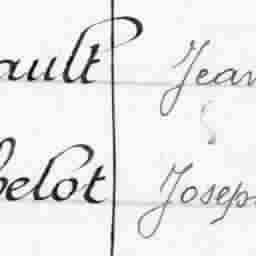 ault Jean
belot Joseph